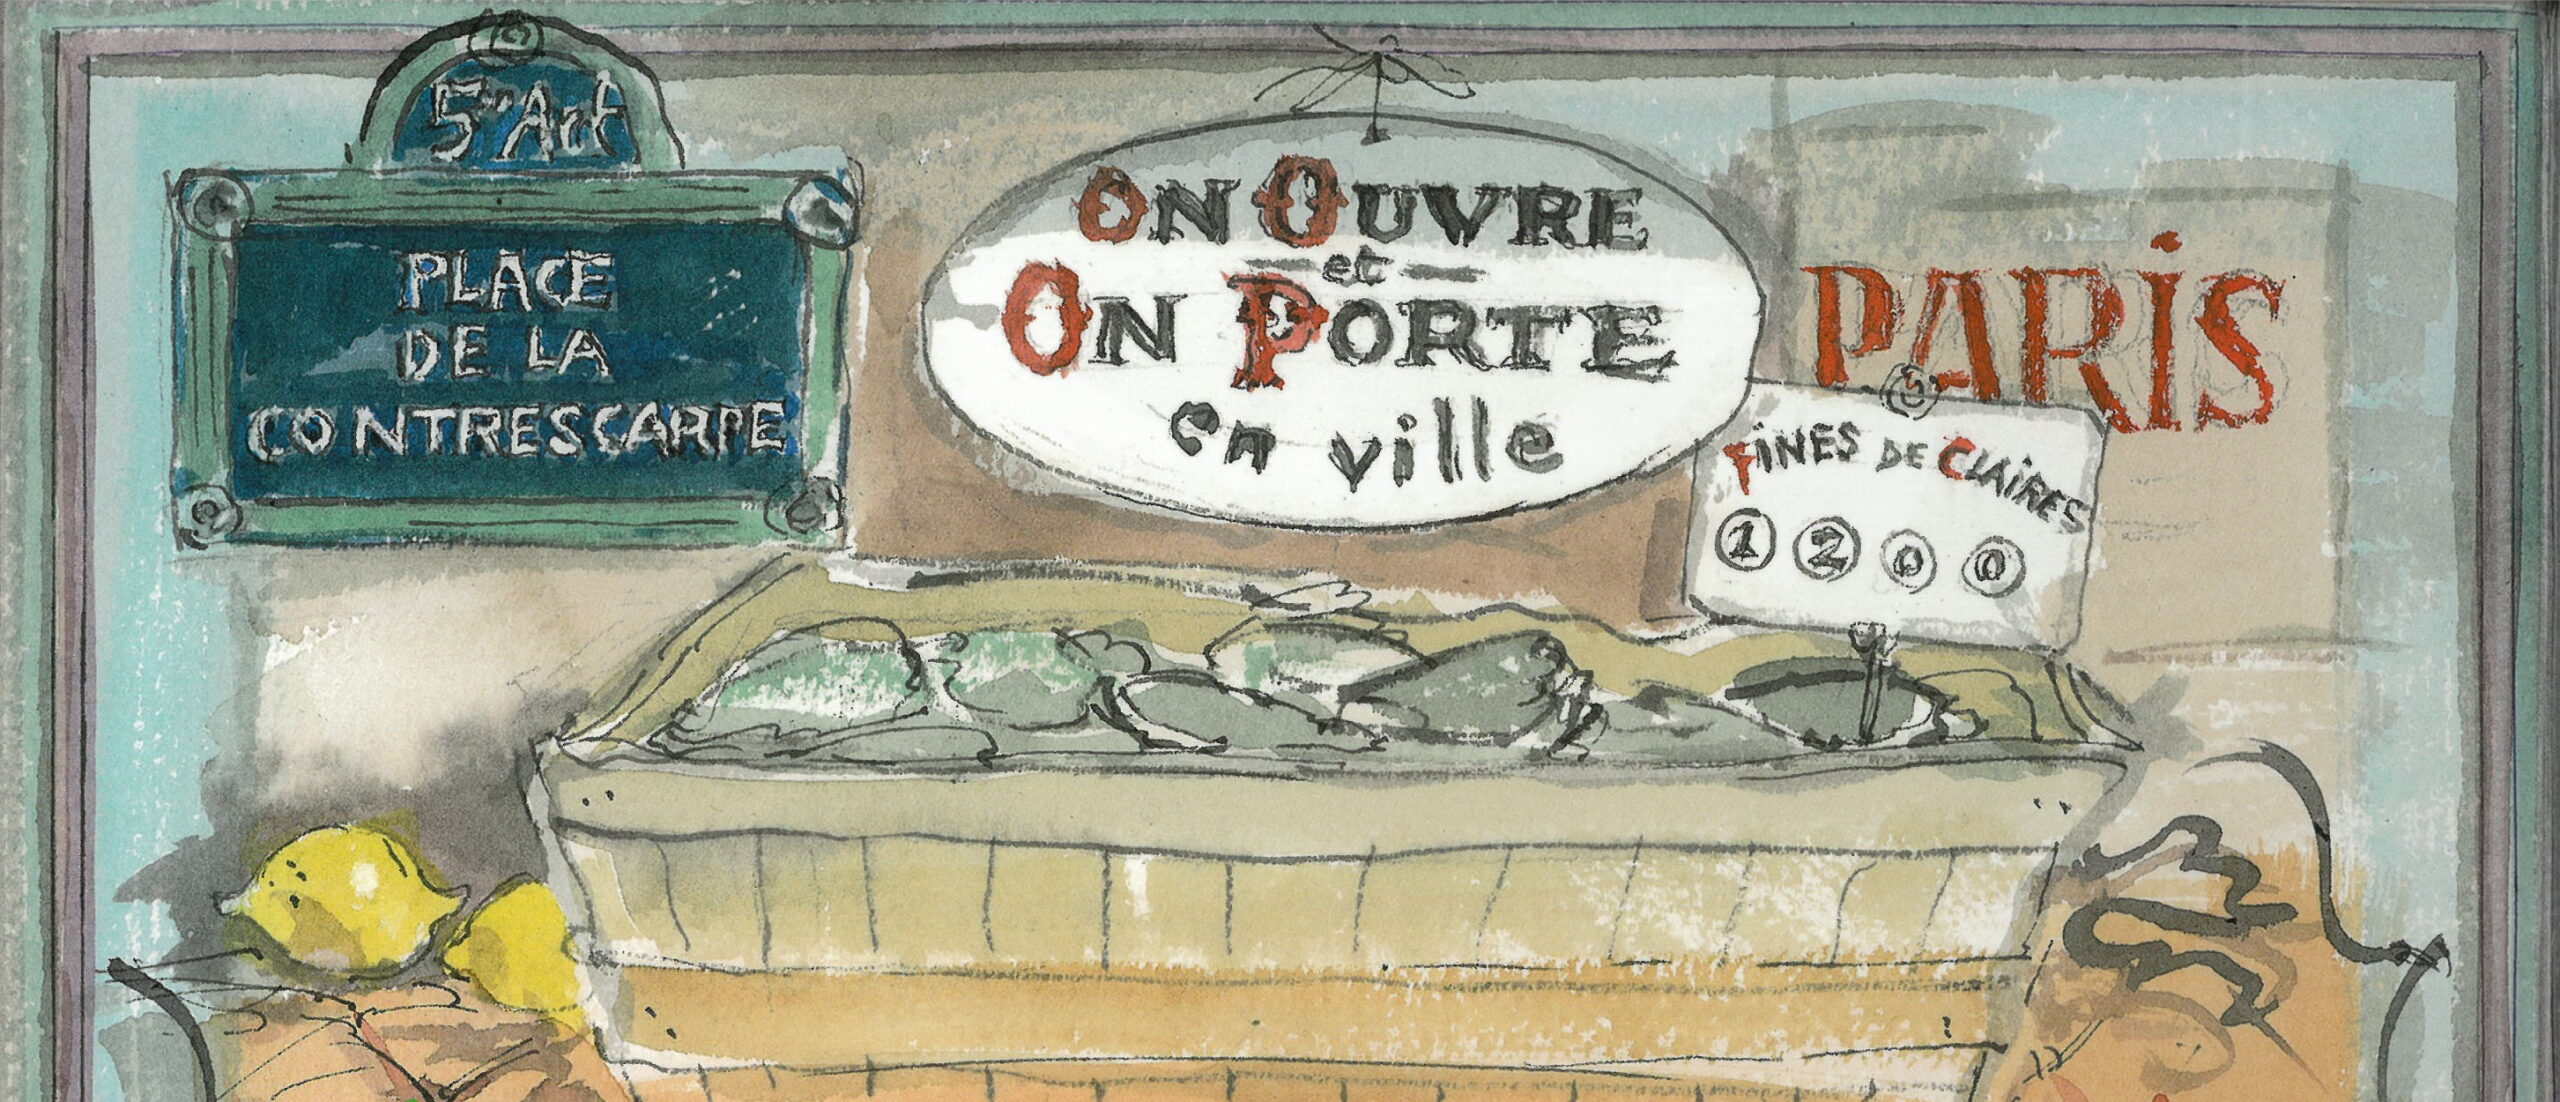 5e Art
PLACE
DE LA
CONTRESCARPE
ON OUVRE
et
ON PORTE
en ville
PARiS
FiNES DE CLAiRES
1 2 0 0